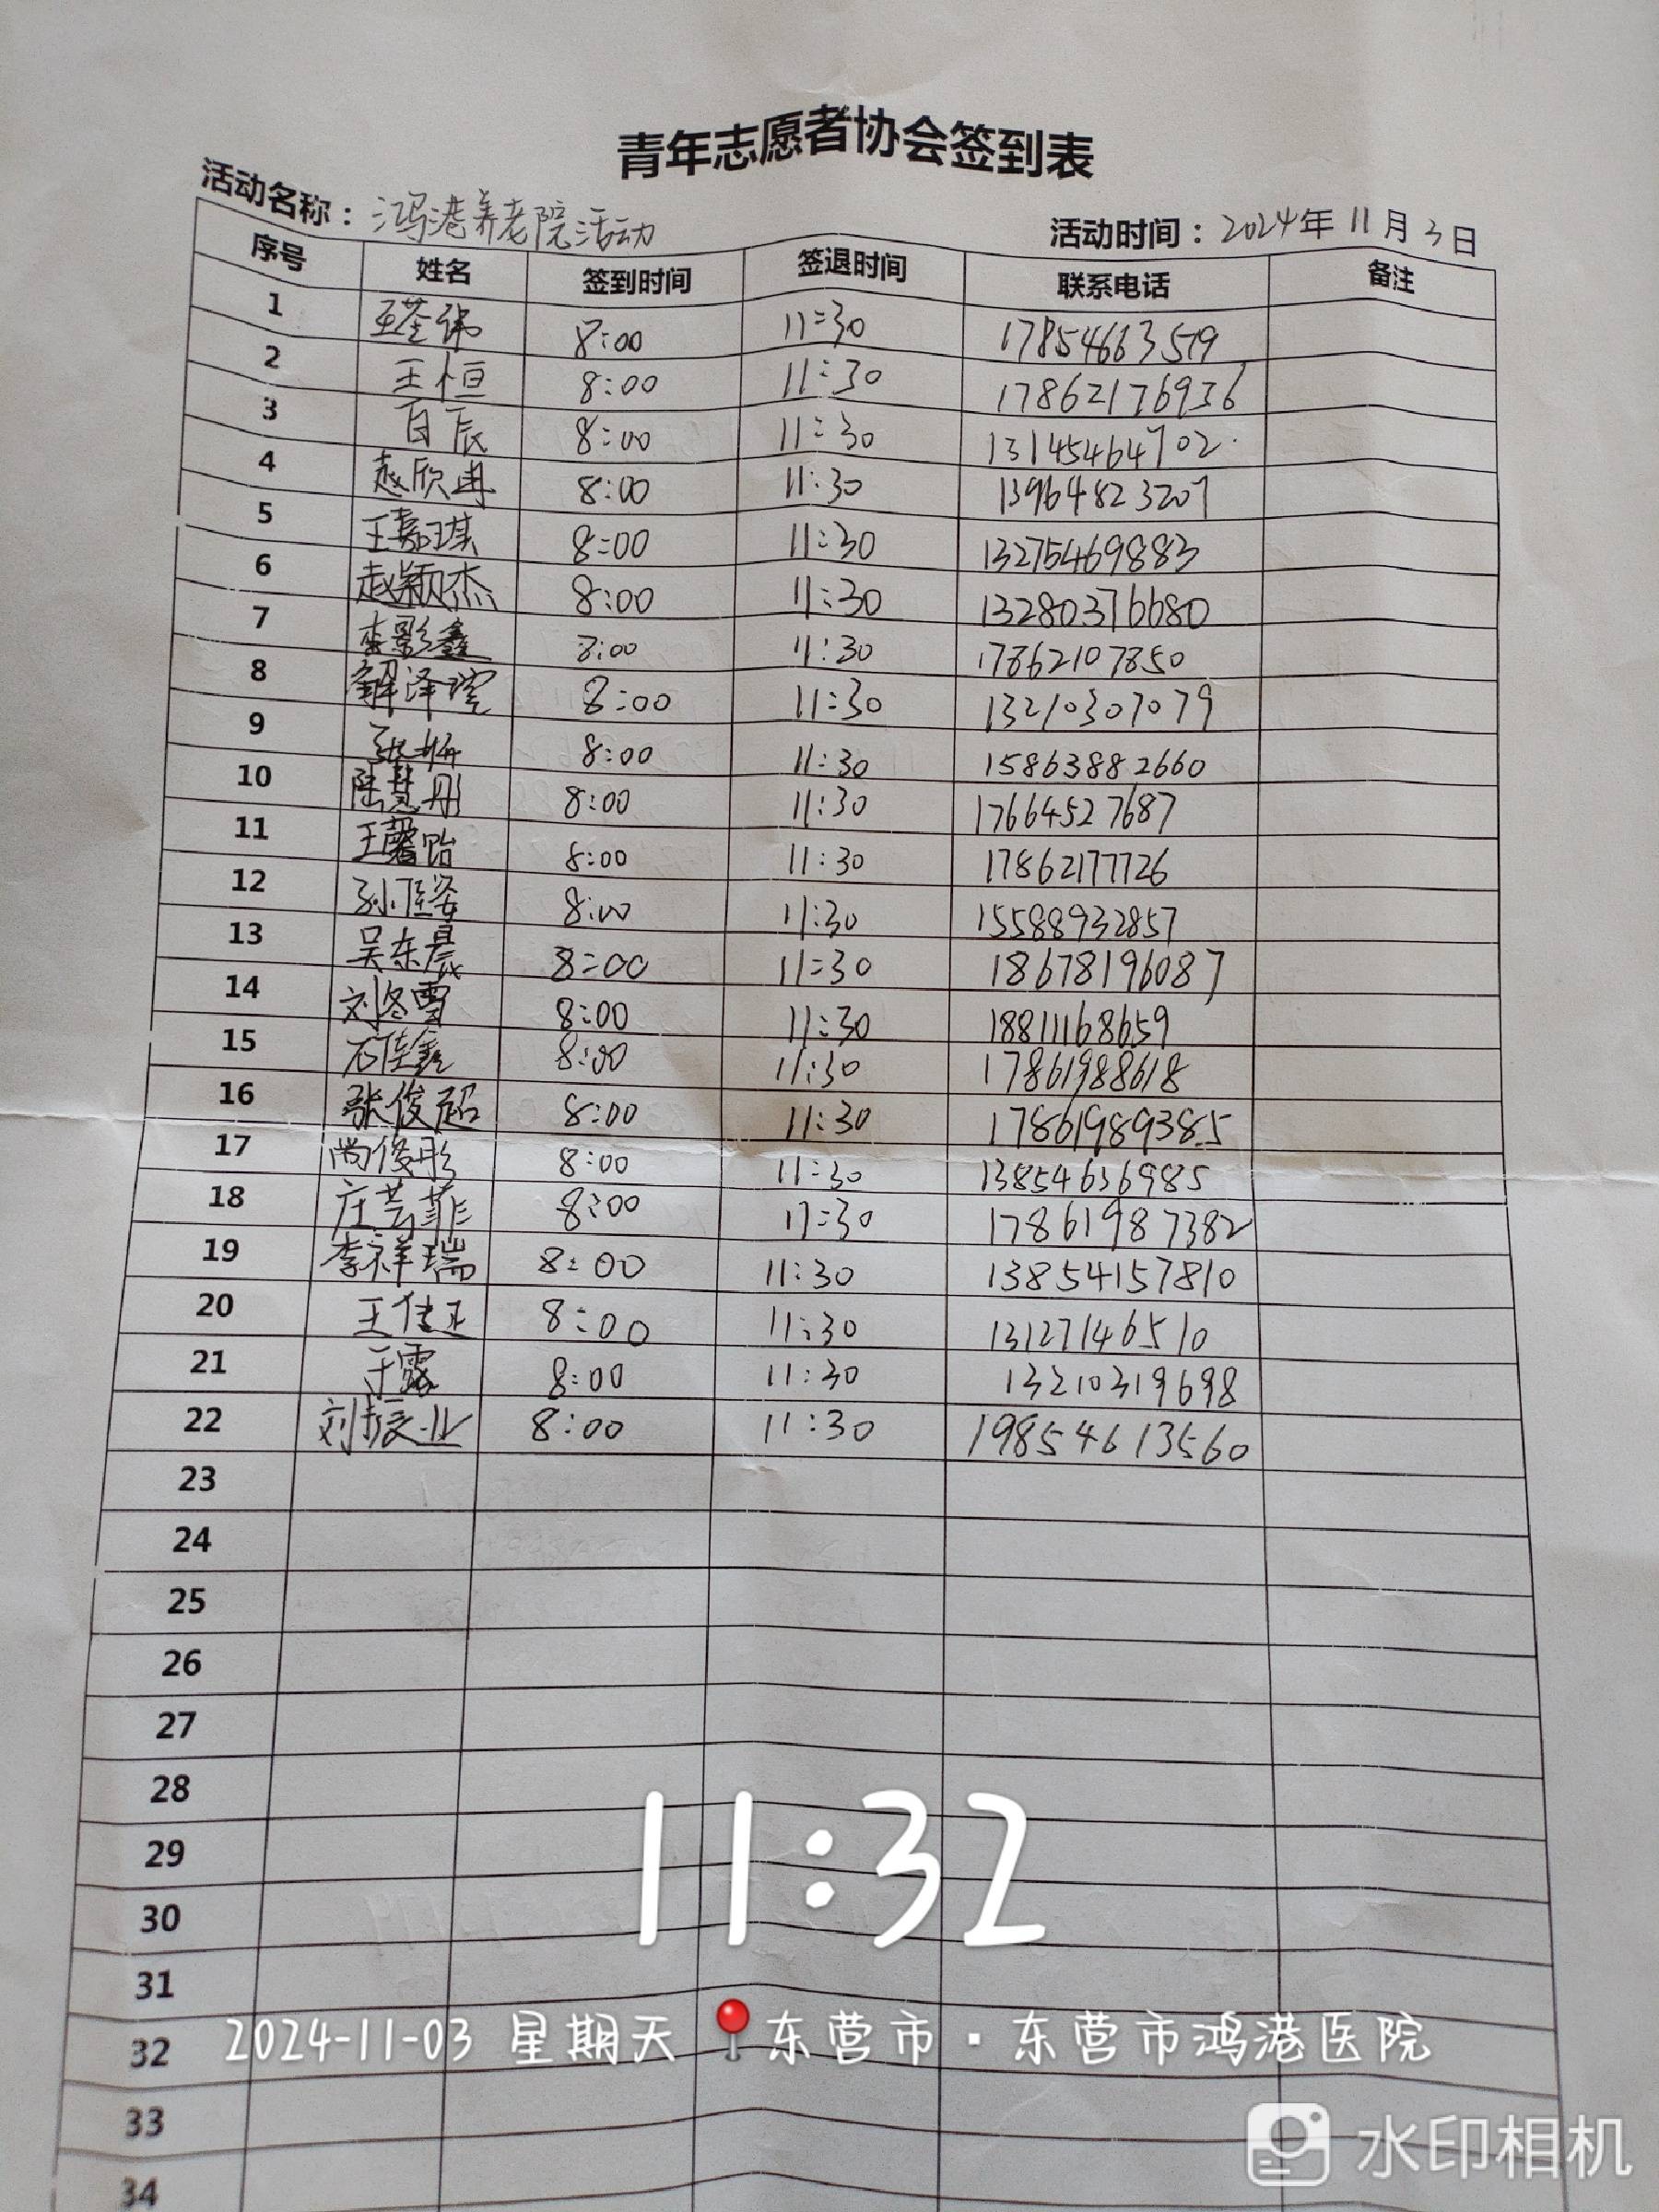 青年志愿者协会签到表
活动名称：鸿港养老院活动 活动时间：2024年11月3日
序号 姓名 签到时间 签退时间 联系电话 备注
1 8:00 11:30 17854663519
2 王恒 8:00 11:30 17862176936
3 白辰 8:00 11:30 13145464702
4 赵欣冉 8:00 11:30 13964823207
5 王嘉琪 8:00 11:30 13275469883
6 赵颖杰 8:00 11:30 13280376680
7 李影鑫 8:00 11:30 17862107850
8 解泽 8:00 11:30 13210307079
9 张妍 8:00 11:30 15863882660
10 陆慧彤 8:00 11:30 17664527687
11 王馨贻 8:00 11:30 17862177726
12 孙佳姿 8:00 11:30 15588932857
13 吴东晨 8:00 11:30 18678196087
14 刘冬雪 8:00 11:30 18811168659
15 石佳鑫 8:00 11:30 17861988618
16 张俊超 8:00 11:30 17861989385
17 尚俊彤 8:00 11:30 13854636985
18 庄芸菲 8:00 11:30 17861987382
19 李祥瑞 8:00 11:30 13854157810
20 王佳正 8:00 11:30 13127146510
21 于露 8:00 11:30 13210319698
22 刘振业 8:00 11:30 19854613560
23
24
25
26
27
28
29
30
31
32
33
34
11:32
2024-11-03 星期天 东营市·东营市鸿港医院
水印相机